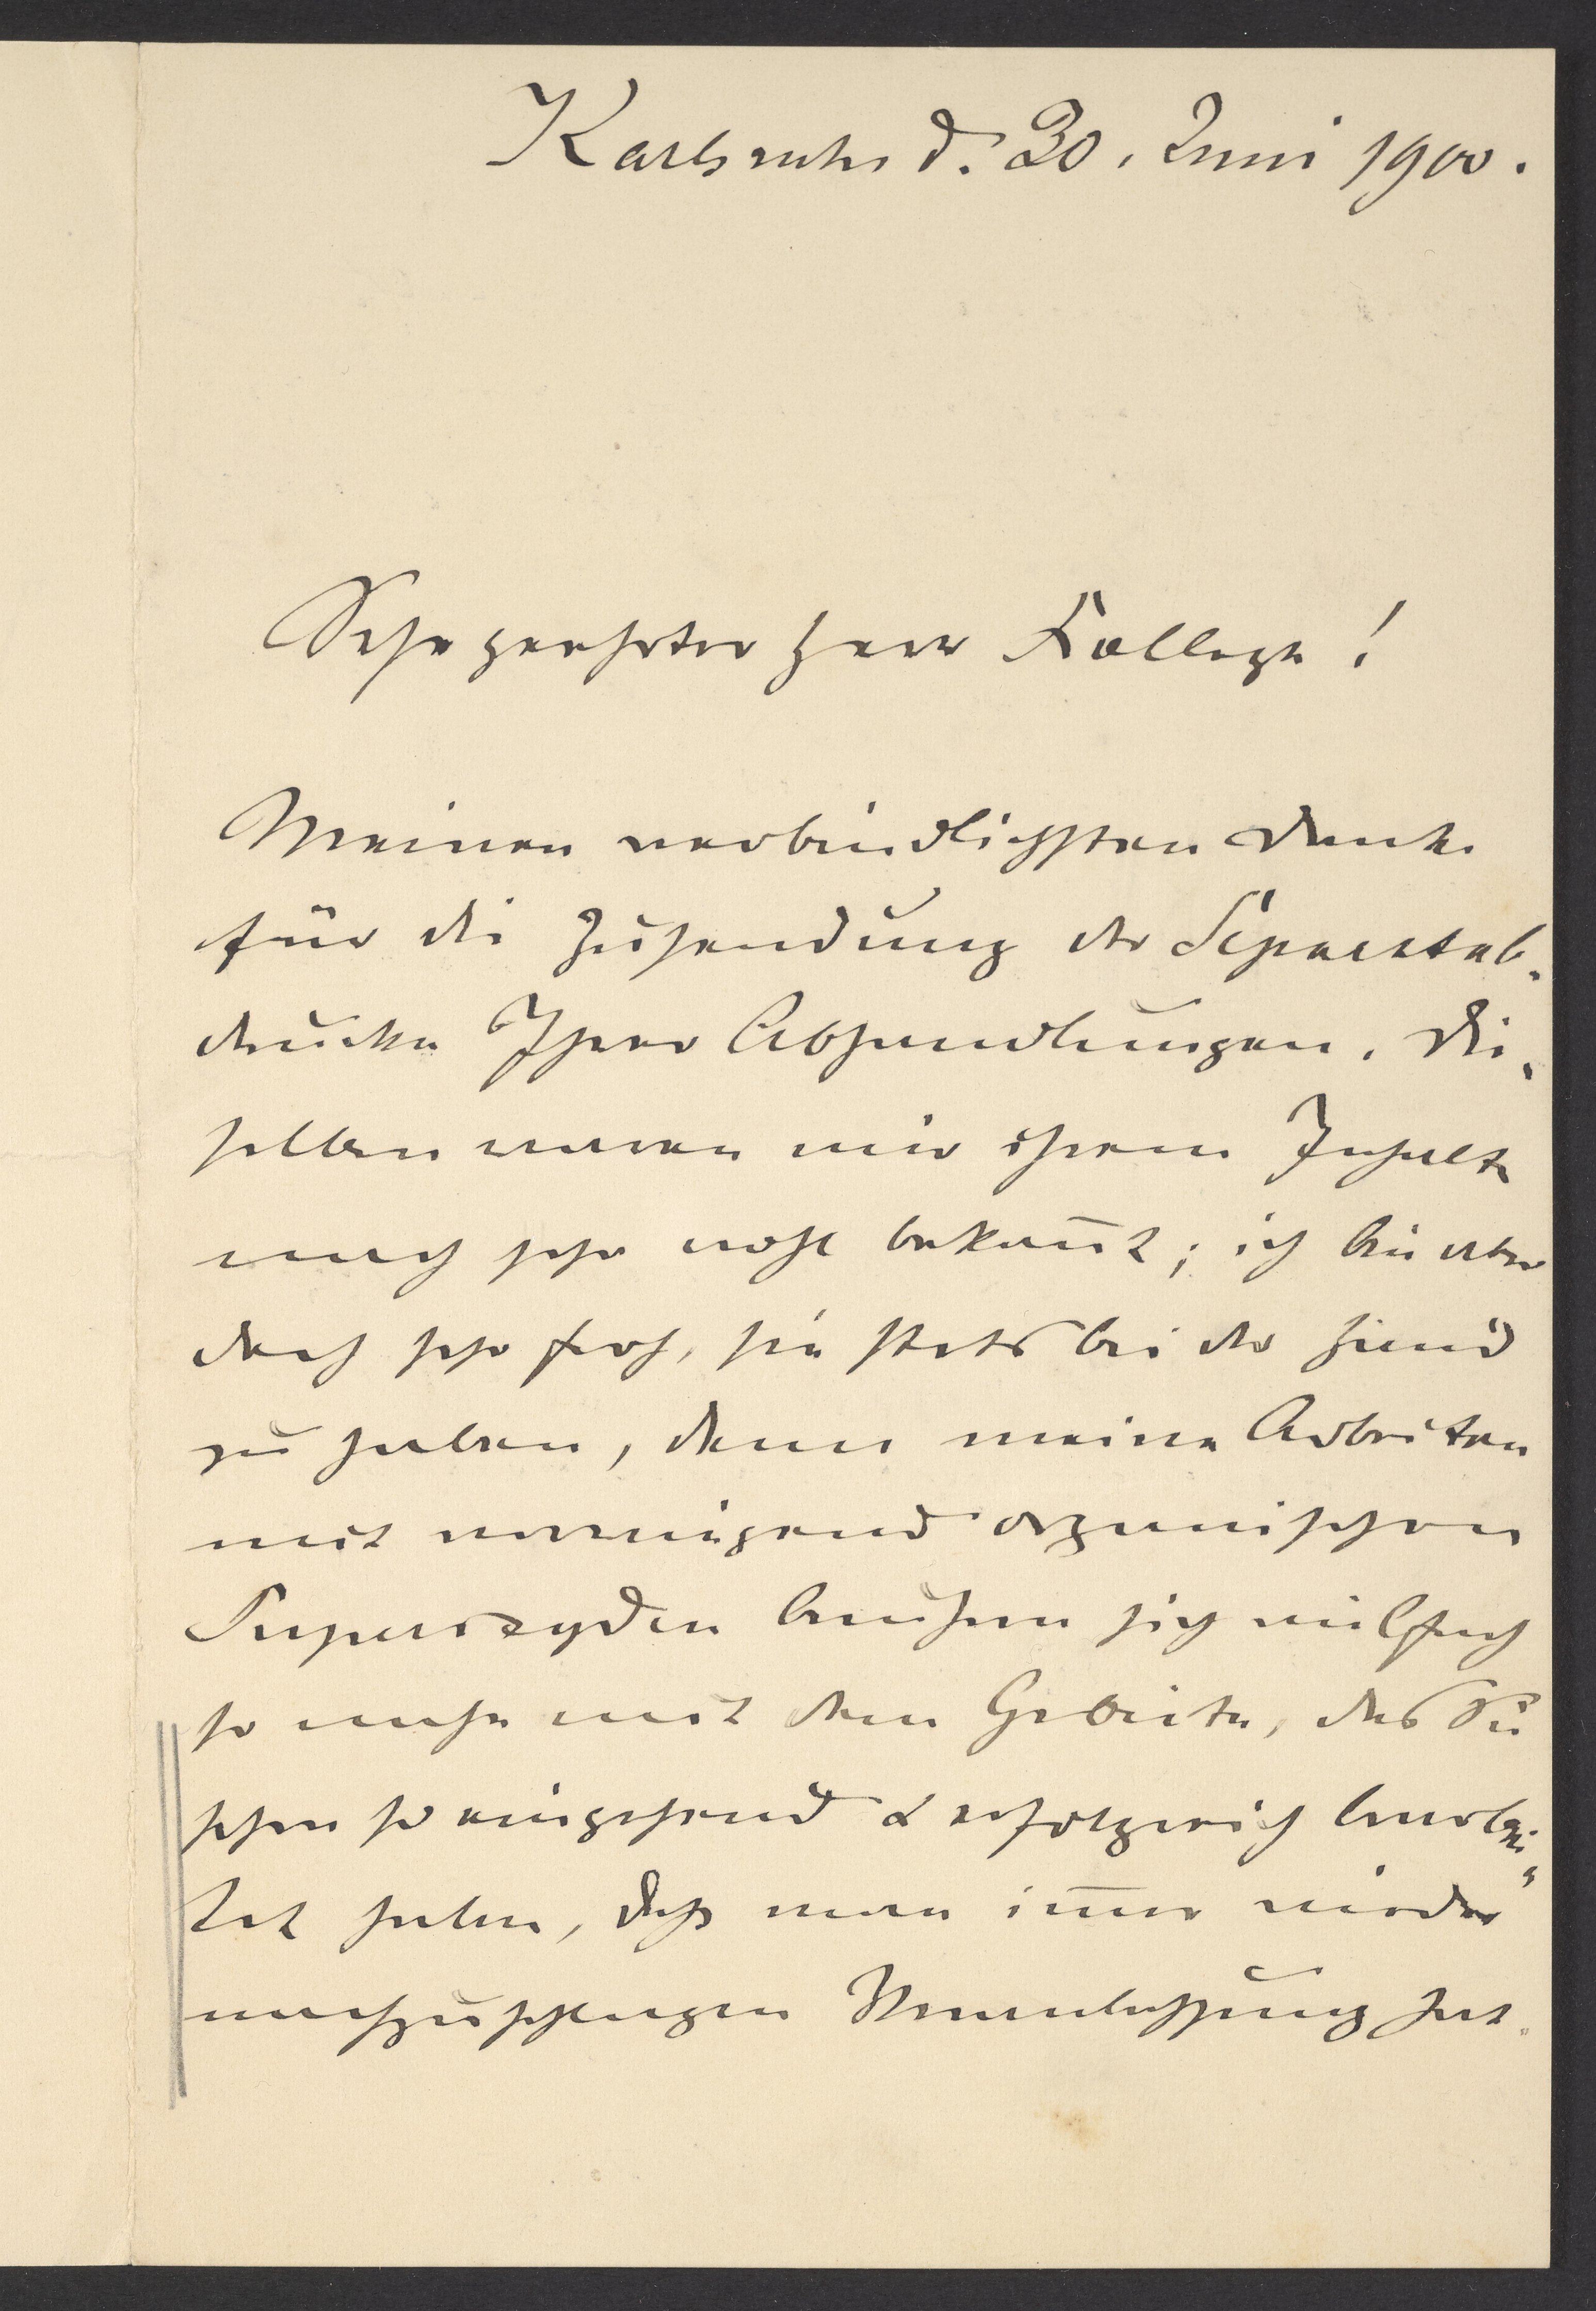 Karlsruhe d. 30. Juni 1900.
Sehr geehrter Herr Kollege!
Meinen verbindlichsten Dank
für die Zusendung der Separatab-
drücke Ihrer Abhandlungen. Die-
selben waren mir ihrem Inhalt
nach sehr wohl bekan̅t; ich bin aber
doch sehr froh, sie stets bei der Hand
zu haben, denn meine Arbeiten
mit anorganischen
Superoxyden berühren sich vielfach
so nahe mit dem Gebiete, das Sie
schon so eingehend & erfolgreich bearbei-
tet haben, daß man im̅er wieder
nachzuschlagen Veranlassung hat.